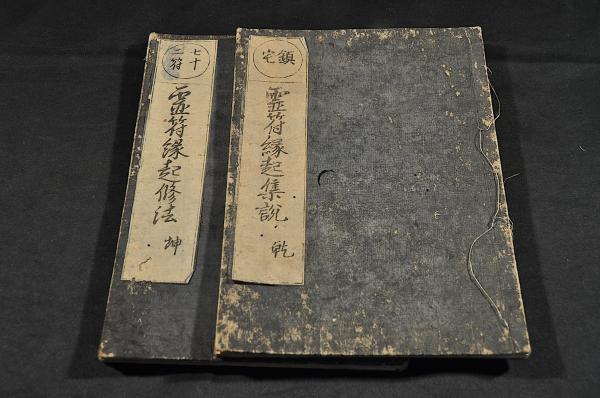 鎮宅
靈符縁起集説
乾
七十二符
靈符縁起修法
坤